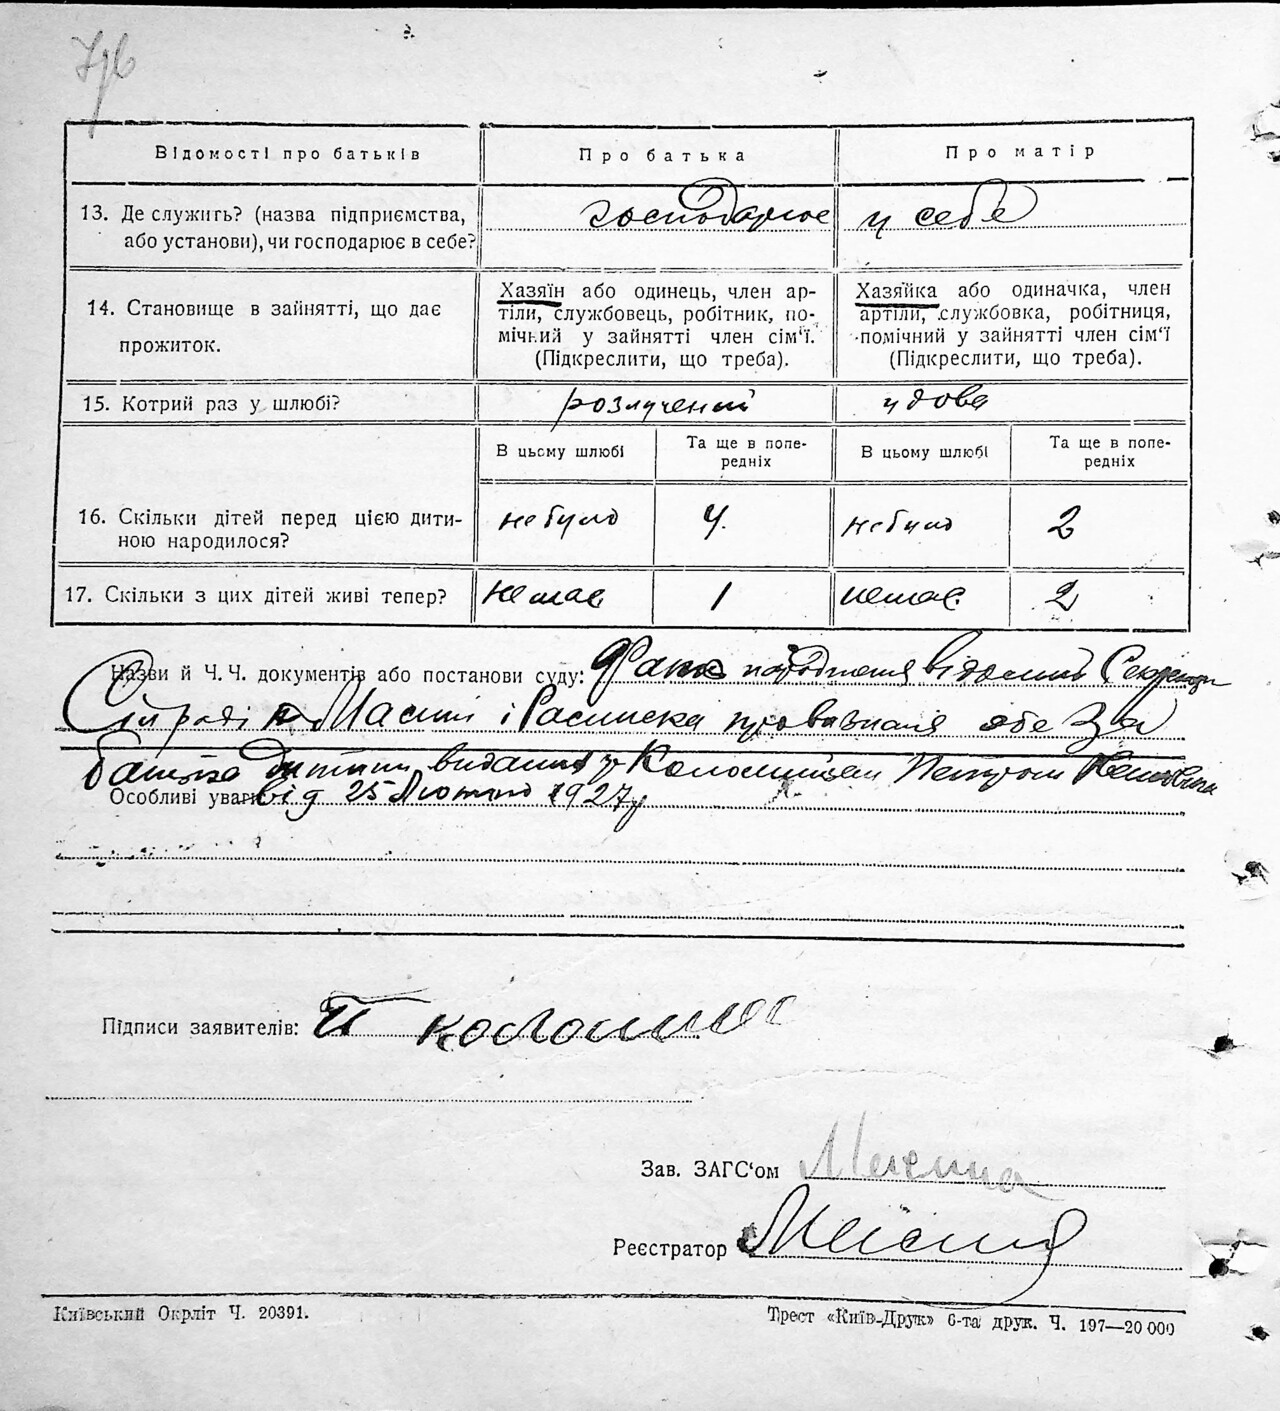 Відомості про батьків
Про батька
Про матір
13. Де служить? (назва підприємства, або установи), чи господарює в себе?
господарює
у себе
14. Становище в зайнятті, що дає прожиток.
Хазяїн або одинець, член ар-
тіли, службовець, робітник, по-
мічний у зайнятті член сім'ї.
(Підкреслити, що треба).
Хазяйка або одиначка, член
артіли, службовка, робітниця,
помічний у зайнятті член сім'ї
(Підкреслити, що треба).
15. Котрий раз у шлюбі?
розлучений
удова
В цьому шлюбі
Та ще в попе-
редніх
В цьому шлюбі
Та ще в попе-
редніх
16. Скільки дітей перед цією дити-
ною народилося?
небуло
4.
небуло
2
17. Скільки з цих дітей живі тепер?
немає
1
немає
2
Назви й Ч.Ч. документів або постанови суду: Факт народження відомий
Сільради і Росписка про визнаня себе За
батька дитини видання Коломийцем Петром
Особливі уваги: від 25 Лютого 1927р
Підписи заявителів: П Коломиєс
Зав. ЗАГС'ом
Реєстратор
Київський Окрліт Ч. 20391.
Трест «Київ-Друк» 6-та друк. Ч. 197—20 000